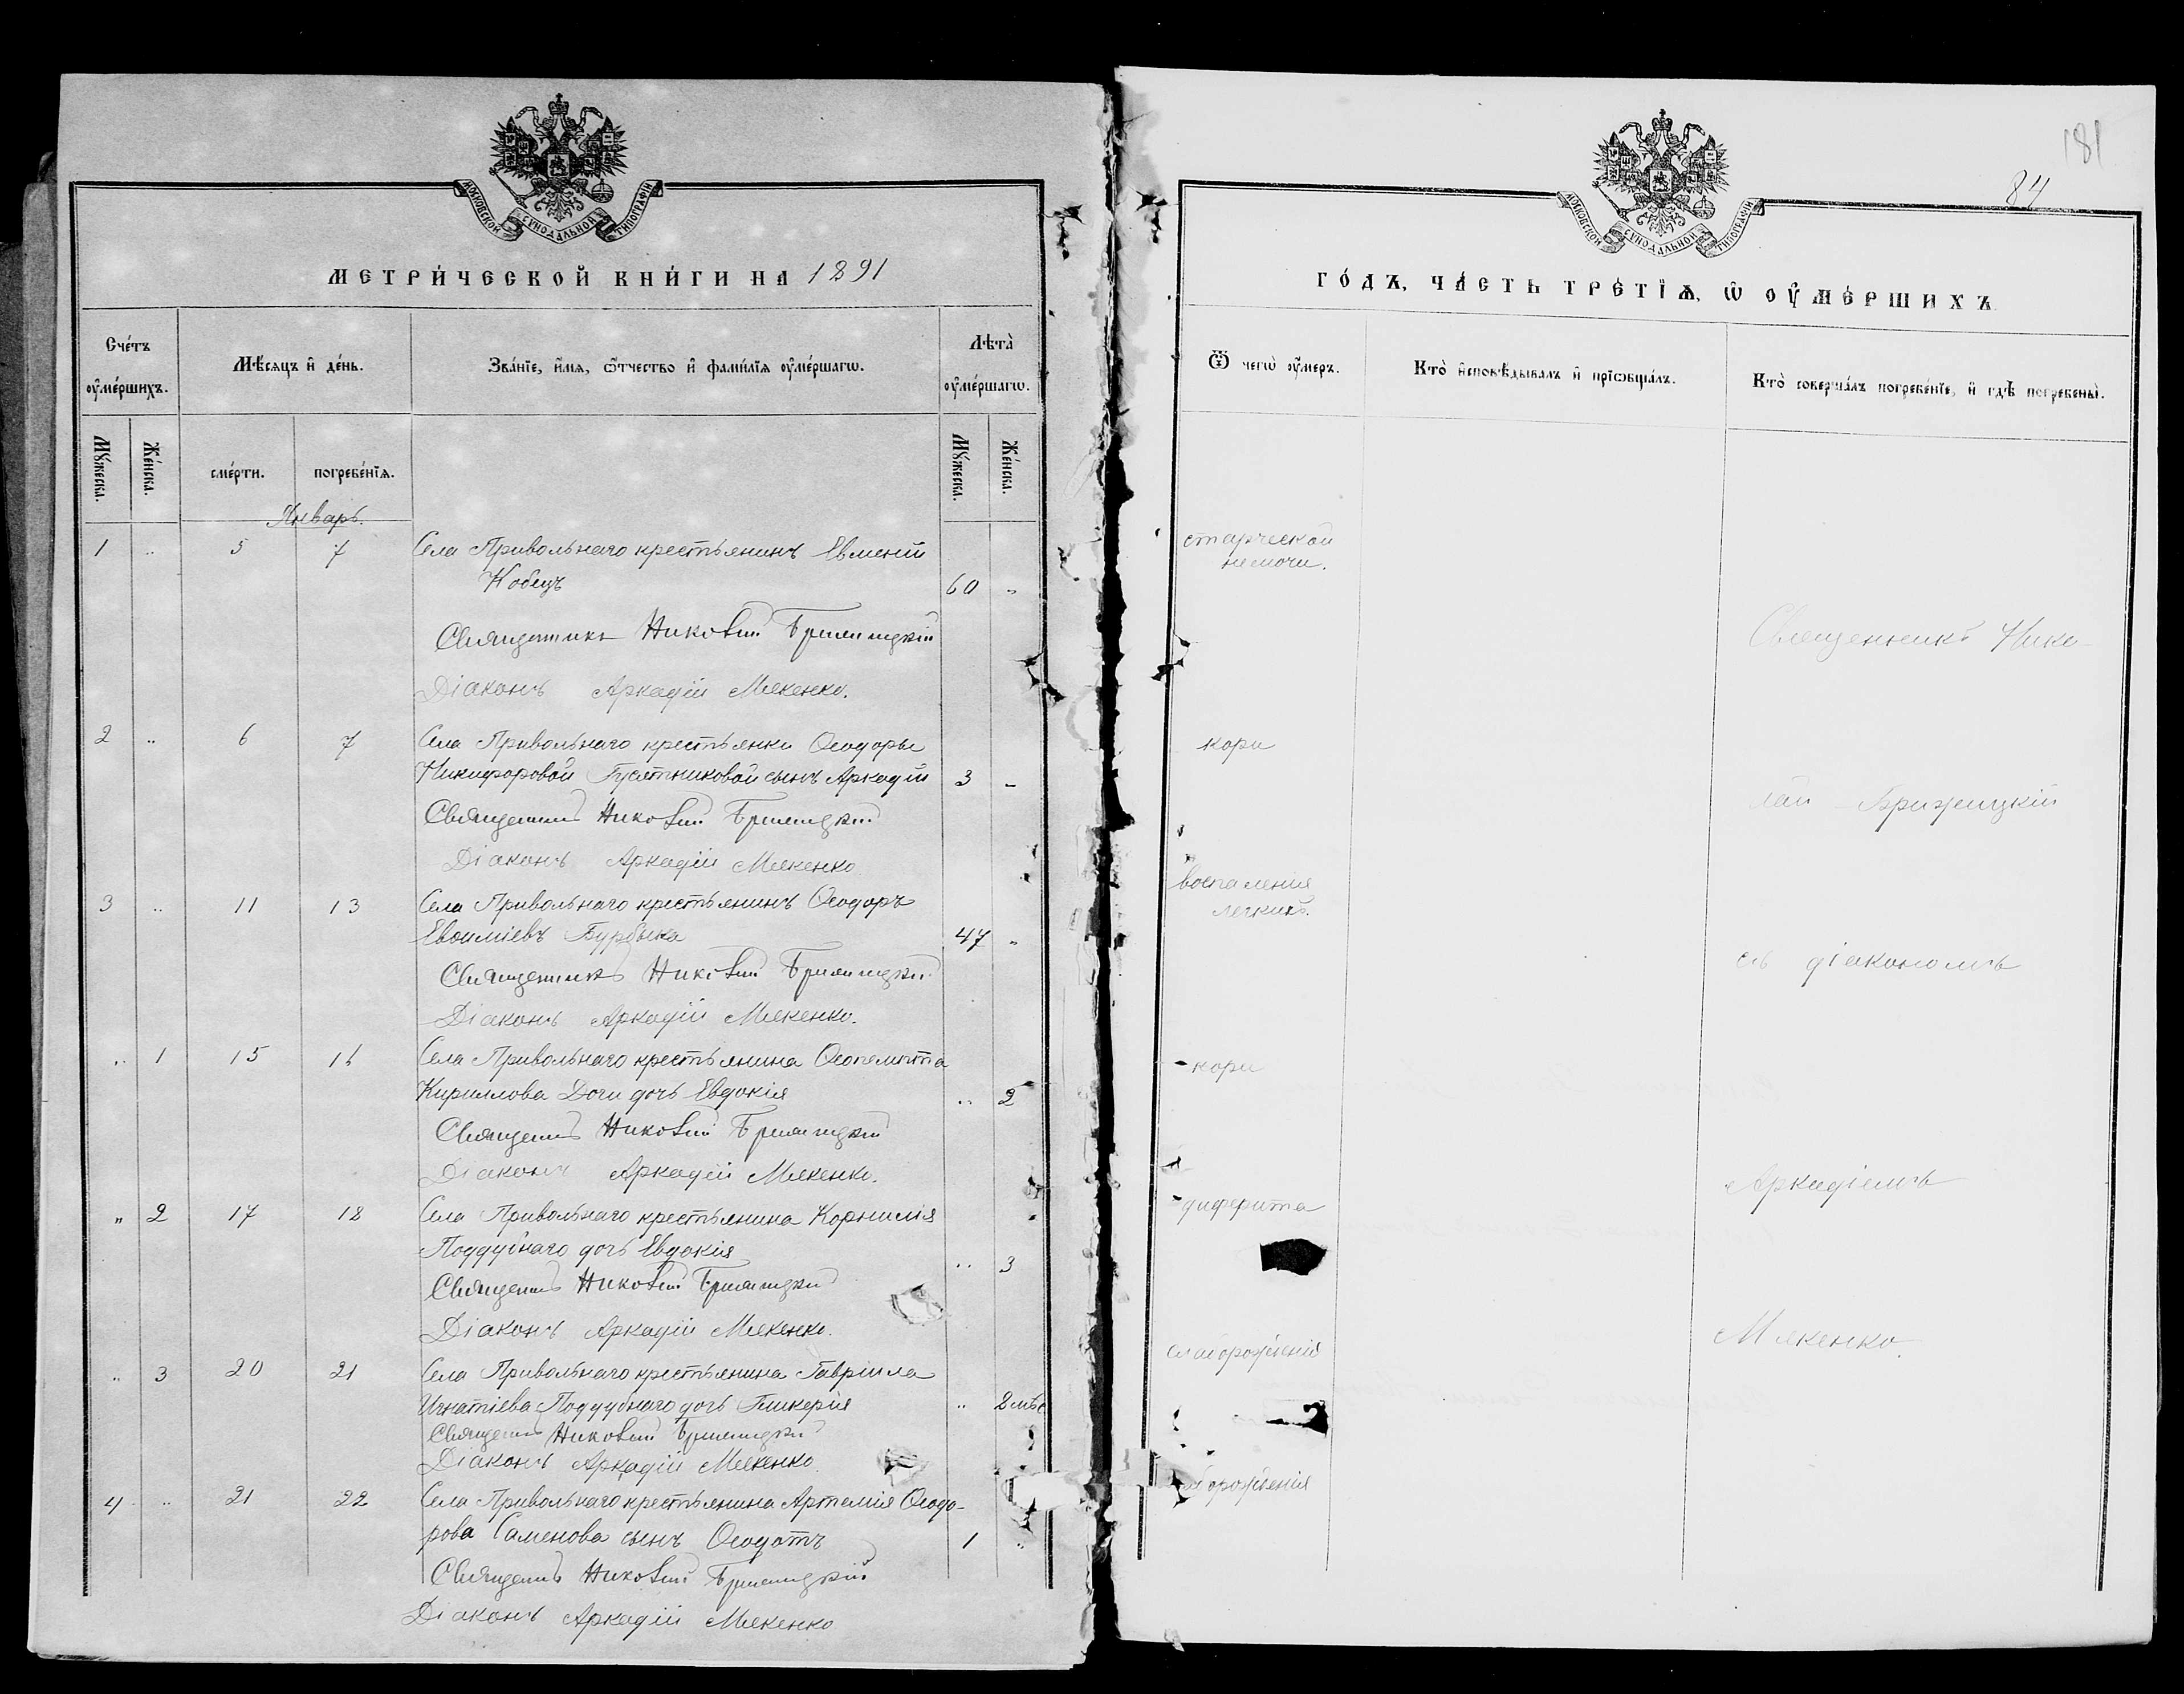 МОСКОВСКОЙ СѴНОДАЛЬНОЙ ТИПОГРАФІИ
МЕТРИ́ЧЕСКОЙ КНИ́ГИ НА 1891
Сче́тъ ᲂу҆ме́ршихъ.
Мѣ́сяцъ и҆ де́нь.
Зва́нїе, и҆́мѧ, ѻ҆́тчество и҆ фами́лїѧ ᲂу҆ме́ршагѡ.
Лѣ́та ᲂу҆ме́ршагѡ.
Мꙋ́жеска.
Же́нска.
сме́рти.
погребе́нїѧ.
Мꙋ́жеска.
Же́нска.
Январь.
1 .. 5 7 Села Привольнаго крестьянинъ Евменій
Кобецъ 60 „
Священникъ Николай Брижицкій
Діаконъ Аркадій Мякенко.
2 .. 6 7 Села Привольнаго крестьянки Ѳеодоры
Никифоровой Гусятниковой сынъ Аркадій 3 „
Священникъ Николай Брижицкій
Діаконъ Аркадій Мякенко
3 .. 11 13 Села Привольнаго крестьянинъ Ѳеодоръ
Евѳиміевъ Бурбыка 47 „
Священникъ Николай Брижицкій
Діаконъ Аркадій Мякенко.
.. 1 15 16 Села Привольнаго крестьянина Ѳеопемпта
Кириллова Доги дочь Евдокія .. 2
Священникъ Николай Брижицкій
Діаконъ Аркадій Мякенко.
„ 2 17 18 Села Привольнаго крестьянина Корнилія
Поддубнаго дочь Евдокія .. 3
Священникъ Николай Брижицкій
Діаконъ Аркадій Мякенко.
.. 3 20 21 Села Привольнаго крестьянина Гавріила
Игнатіева Поддубнаго дочь Гликерія .. 2 мѣс
Священникъ Николай Брижицкій
Діаконъ Аркадій Мякенко
4 .. 21 22 Села Привольнаго крестьянина Артемія Ѳеодо-
рова Саменова сынъ Ѳеодотъ 1 „
Священникъ Николай Брижицкій
Діаконъ Аркадій Мякенко
181
84
МОСКОВСКОЙ СѴНОДАЛЬНОЙ ТИПОГРАФІИ
ГО́ДЪ, ЧА́СТЬ ТРЕ́ТЇѦ, Ѡ ОУ҆МЕ́РШИХЪ
Ѿ чегѡ̀ ᲂу҆́меръ.
Кто̀ и҆сповѣ́дывалъ и҆ прїѡбща́лъ.
Кто̀ соверша́лъ погребе́нїе, и҆ гдѣ̀ погребены̀.
старческой
немочи.
Священникъ Нико-
кори
лай Брижицкій
воспаленія
легкихъ.
съ діакономъ
кори
Аркадіемъ
дифтерита
Мякенко.
слаборожденія
борожденія